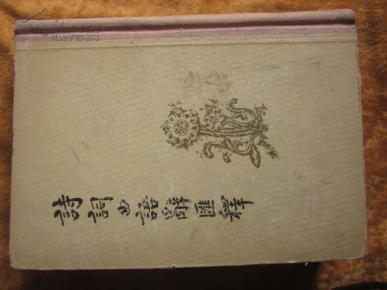 詩詞曲語辭匯釋